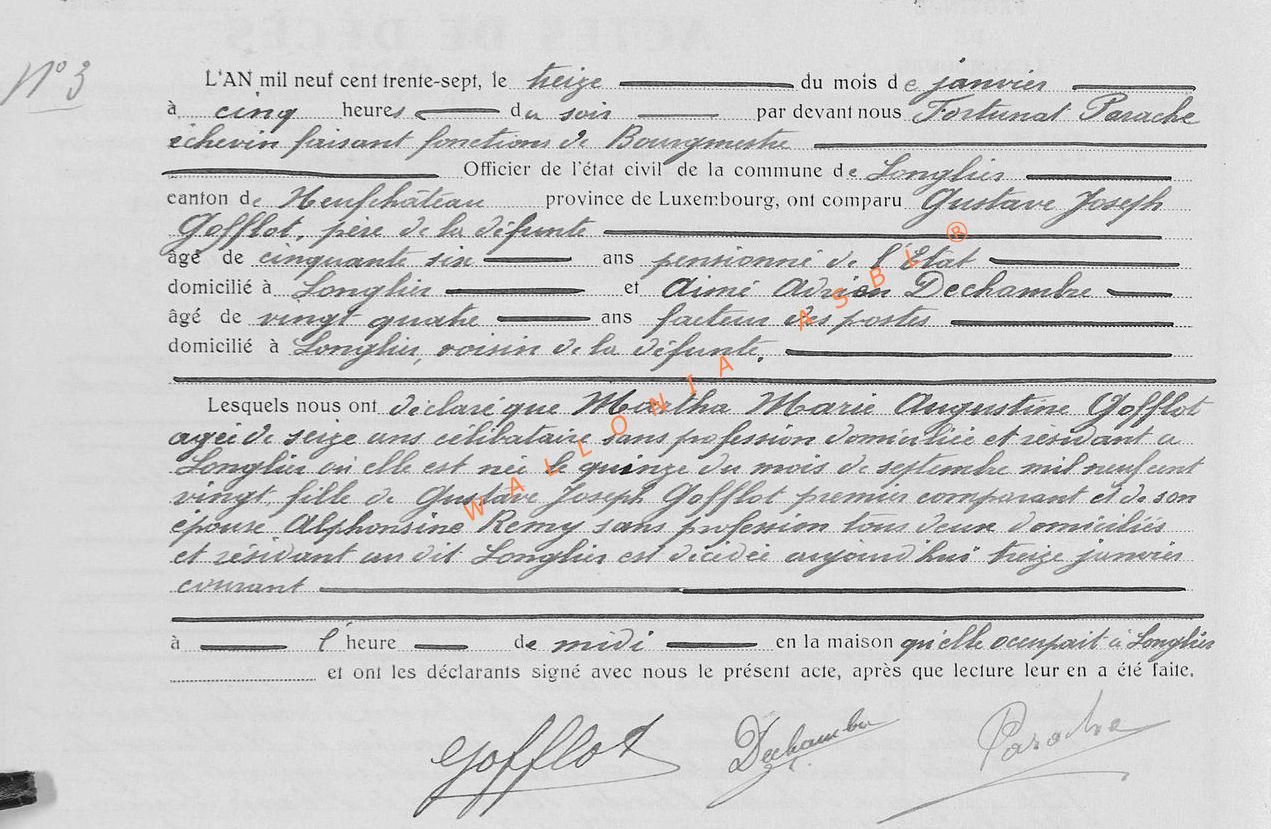 N° 3
L'AN mil neuf cent trente-sept, le treize du mois de janvier
à cinq heures du soir par devant nous Fortunat Parache
échevin faisant fonctions de Bourgmestre
Officier de l'état civil de la commune de Longlier
canton de Neufchâteau province de Luxembourg, ont comparu Gustave Joseph
Gofflot, père de la défunte
âgé de cinquante six ans pensionné de l'Etat
domicilié à Longlier et Aimé Adrien Dechambre
âgé de vingt quatre ans facteur des postes
domicilié à Longlier, voisin de la défunte.
Lesquels nous ont déclaré que Martha Marie Augustine Gofflot
agée de seize ans célibataire sans profession domiciliée et résidant à
Longlier où elle est née le quinze du mois de septembre mil neuf cent
vingt, fille de Gustave Joseph Gofflot premier comparant et de son
épouse Alphonsine Remy sans profession tous deux domiciliés
et résidant au dit Longlier est décédée aujourd'hui treize janvier
courant
à l'heure de midi en la maison qu'elle occupait à Longlier
et ont les déclarants signé avec nous le présent acte, après que lecture leur en a été faite.
Gofflot Dechambre Parache
WALLONIA ASBL ®